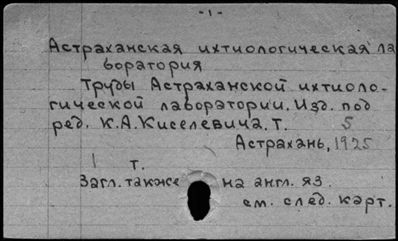 -1-
Астраханская ихтиологическая ла
боратория
Труды Астраханской ихтиоло-
гической лаборатории. Изд. под
ред. К.А. Киселевича. Т. 5
Астрахань, 1925
1 т.
Загл. также на англ. яз.
см. след. карт.